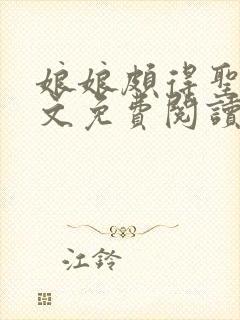 娘娘頗得聖
文免費閱讀
江鈴